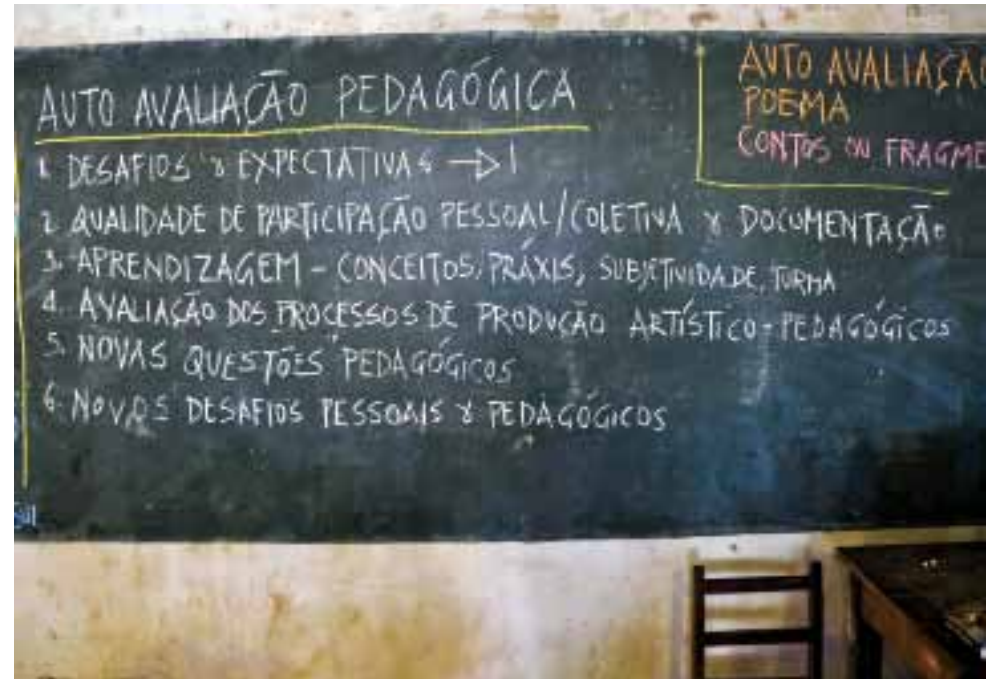 AUTO AVALIAÇÃO PEDAGÓGICA
1. DESAFIOS & EXPECTATIVAS → 1
2. QUALIDADE DE PARTICIPAÇÃO PESSOAL/COLETIVA & DOCUMENTAÇÃO
3. APRENDIZAGEM - CONCEITOS, PRÁXIS, SUBJETIVIDADE, TURMA
4. AVALIAÇÃO DOS PROCESSOS DE PRODUÇÃO ARTÍSTICO-PEDAGÓGICOS
5. NOVAS QUESTÕES PEDAGÓGICOS
6. NOVOS DESAFIOS PESSOAIS & PEDAGÓGICOS
AUTO AVALIAÇÃO
POEMA
CONTOS OU FRAGME